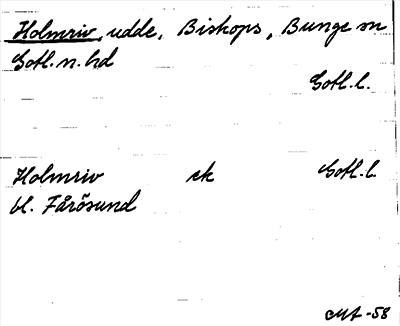 Holmriv, udde, Biskops, Bunge sn
Gotl. n. hd
Gotl. l.
Holmriv ek Gotl. l.
bl. Fårösund
MA -58